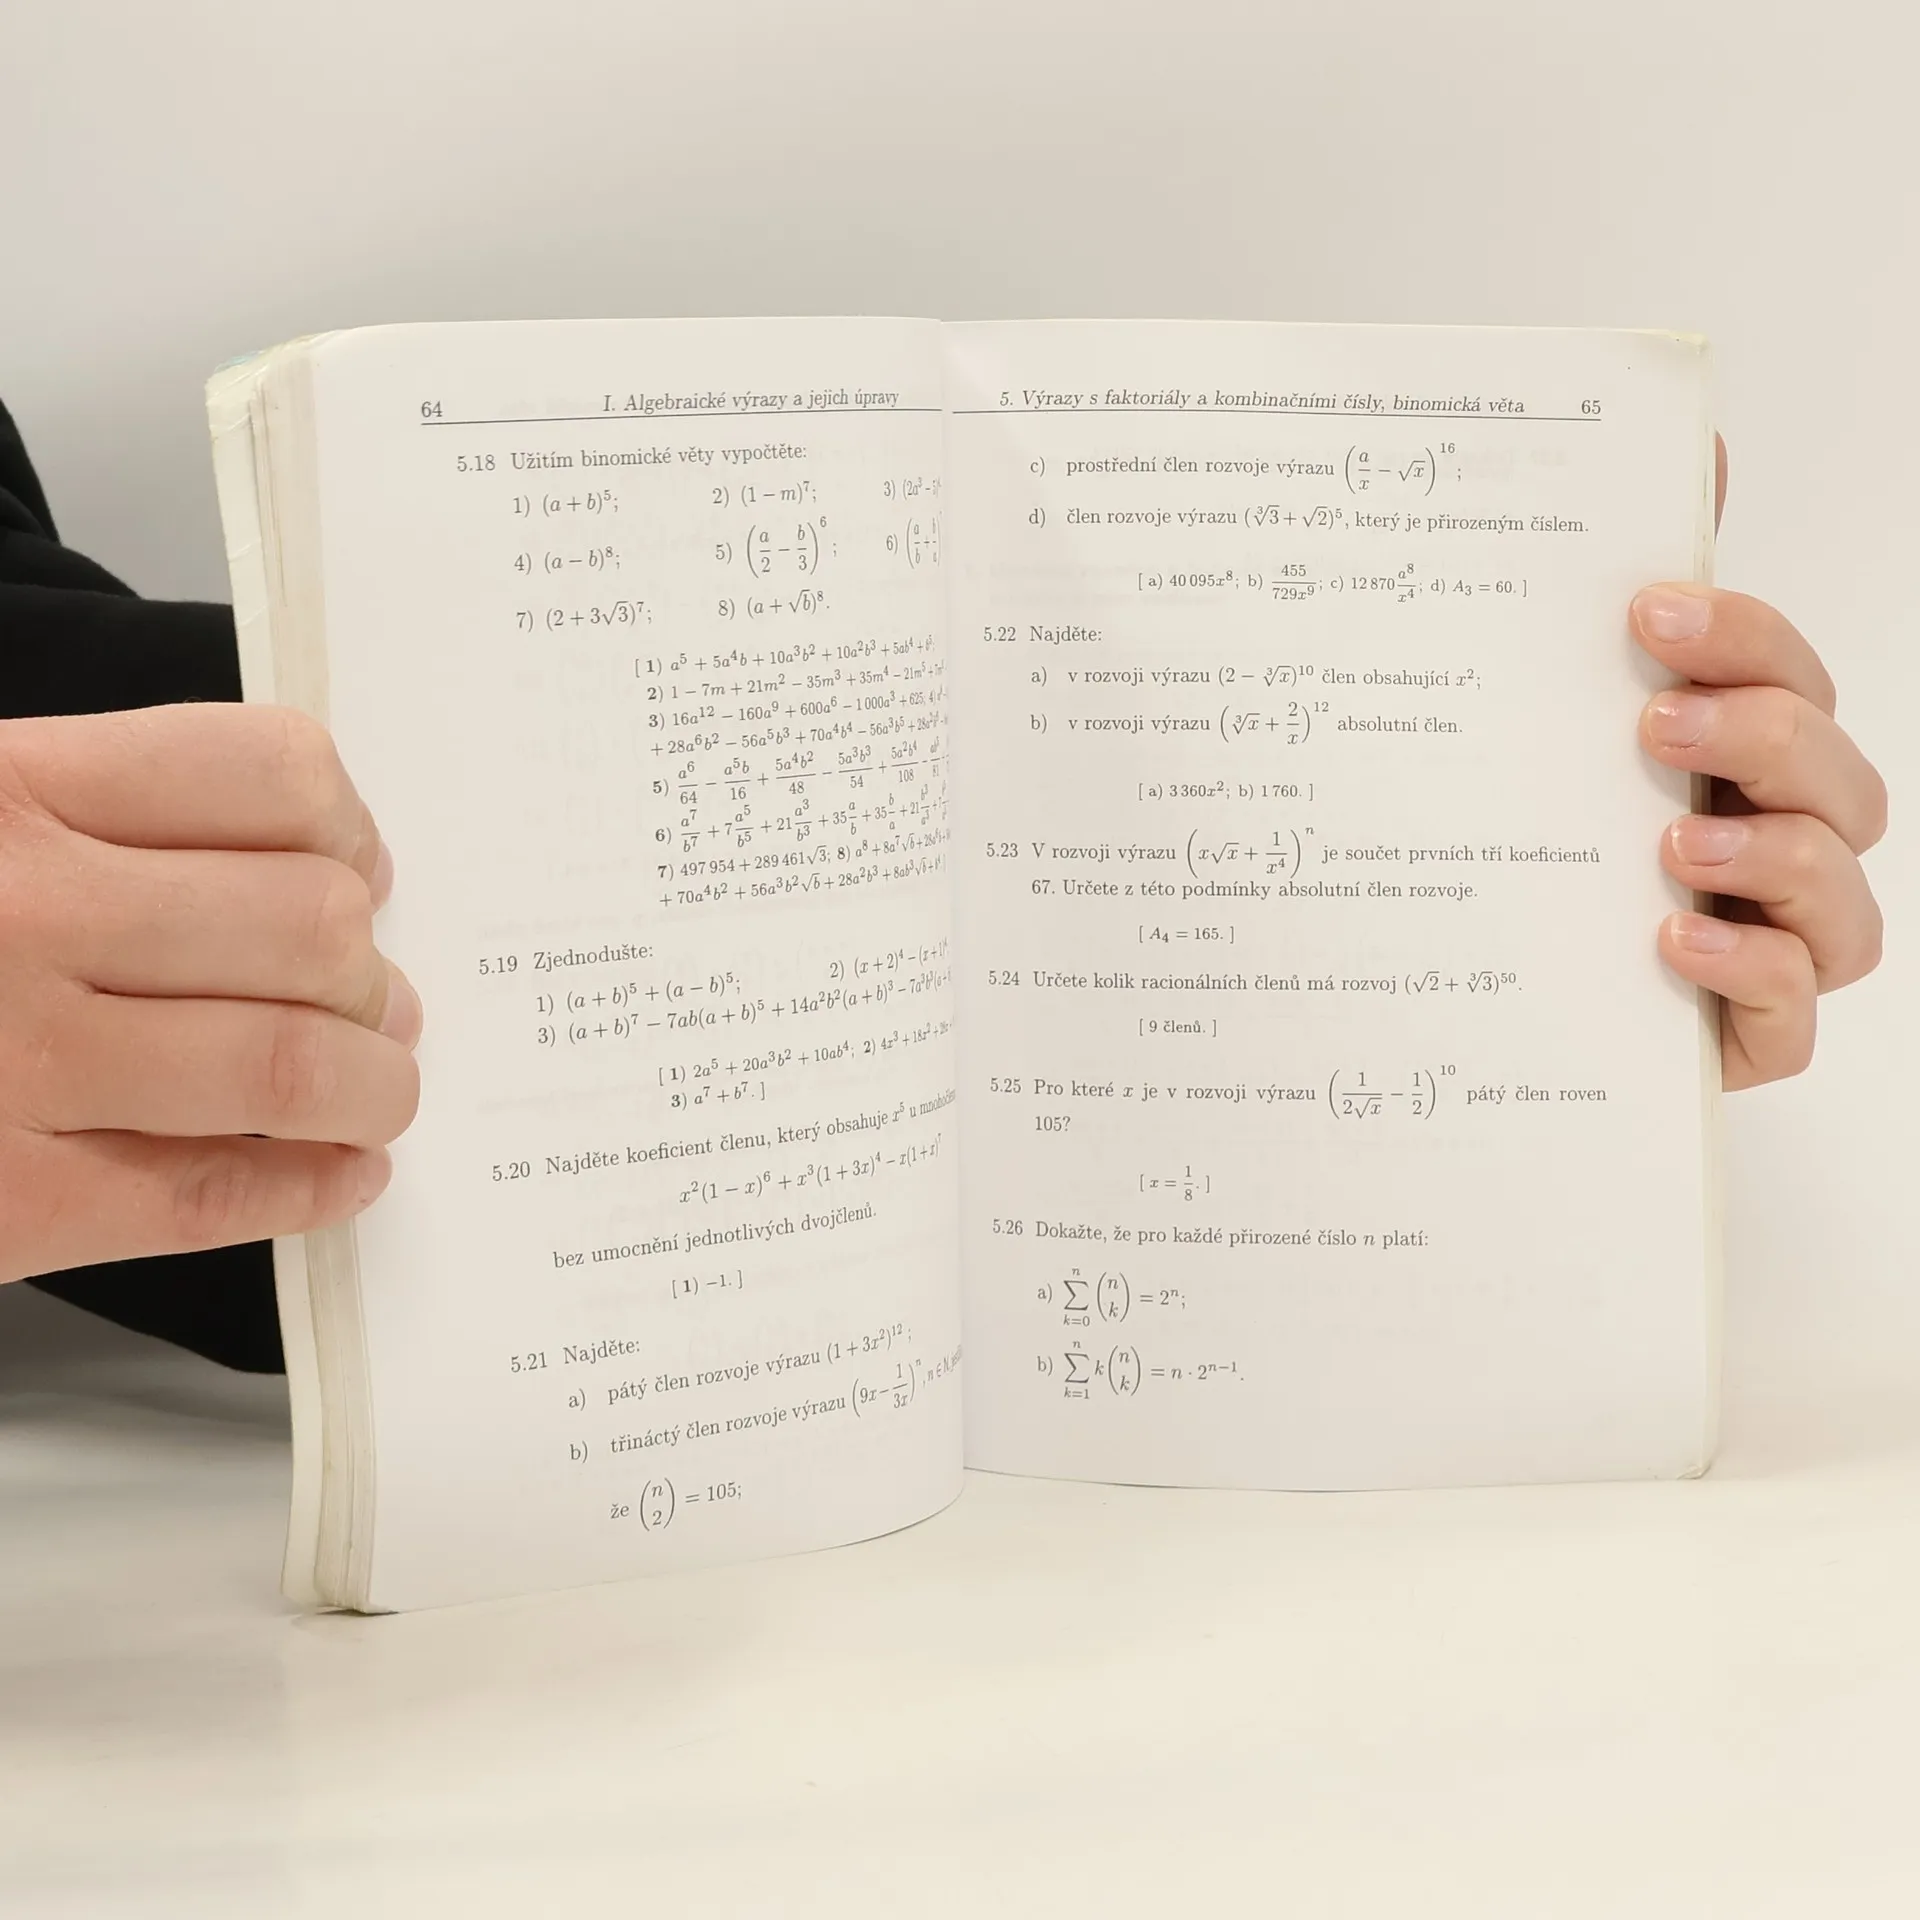 64 I. Algebraické výrazy a jejich úpravy
5.18 Užitím binomické věty vypočtěte:
1) (a + b)⁵; 2) (1 − m)⁷; 3) (2a³ −
4) (a − b)⁸; 5) (a/2 − b/3)⁶; 6) (a/b +
7) (2 + 3√3)⁷; 8) (a + √b)⁸.
[ 1) a⁵ + 5a⁴b + 10a³b² + 10a²b³ + 5ab⁴ + b⁵;
2) 1 − 7m + 21m² − 35m³ + 35m⁴ − 21m⁵ +
3) 16a¹² − 160a⁹ + 600a⁶ − 1 000a³ + 625; 4)
+ 28a⁶b² − 56a⁵b³ + 70a⁴b⁴ − 56a³b⁵ +
5) a⁶/64 − a⁵b/16 + 5a⁴b²/48 − 5a³b³/54 + 5a²b⁴/108 −
6) a⁷/b⁷ + 7 a⁵/b⁵ + 21 a³/b³ + 35 a/b + 35 b/a + 21 b³/a³ +
7) 497 954 + 289 461√3; 8) a⁸ + 8a⁷√b +
+ 70a⁴b² + 56a³b²√b + 28a²b³ + 8ab³√b + b⁴. ]
5.19 Zjednodušte:
1) (a + b)⁵ + (a − b)⁵; 2) (x + 2)⁴ − (x + 1)⁴
3) (a + b)⁷ − 7ab(a + b)⁵ + 14a²b²(a + b)³ − 7a³b³(a +
[ 1) 2a⁵ + 20a³b² + 10ab⁴; 2) 4x³ + 18x² +
3) a⁷ + b⁷. ]
5.20 Najděte koeficient členu, který obsahuje x⁵ u
x²(1 − x)⁶ + x³(1 + 3x)⁴ − x(1 + x)⁷
bez umocnění jednotlivých dvojčlenů.
[ 1) −1. ]
5.21 Najděte:
a) pátý člen rozvoje výrazu (1 + 3x²)¹²;
b) třináctý člen rozvoje výrazu (9x − 1/3x)ⁿ, n ∈ N,
že (n 2) = 105;
5. Výrazy s faktoriály a kombinačními čísly, binomická věta 65
c) prostřední člen rozvoje výrazu (a/x − √x)¹⁶;
d) člen rozvoje výrazu (∛3 + √2)⁵, který je přirozeným číslem.
[ a) 40 095x⁸; b) 455/729x⁹; c) 12 870 a⁸/x⁴; d) A₃ = 60. ]
5.22 Najděte:
a) v rozvoji výrazu (2 − ∛x)¹⁰ člen obsahující x²;
b) v rozvoji výrazu (∛x + 2/x)¹² absolutní člen.
[ a) 3 360x²; b) 1 760. ]
5.23 V rozvoji výrazu (x√x + 1/x⁴)ⁿ je součet prvních tří koeficientů
67. Určete z této podmínky absolutní člen rozvoje.
[ A₄ = 165. ]
5.24 Určete kolik racionálních členů má rozvoj (√2 + ∛3)⁵⁰.
[ 9 členů. ]
5.25 Pro které x je v rozvoji výrazu (1/2√x − 1/2)¹⁰ pátý člen roven
105?
[ x = 1/8. ]
5.26 Dokažte, že pro každé přirozené číslo n platí:
a) ∑ₖ₌₀ⁿ (n k) = 2ⁿ;
b) ∑ₖ₌₁ⁿ k(n k) = n · 2ⁿ⁻¹.